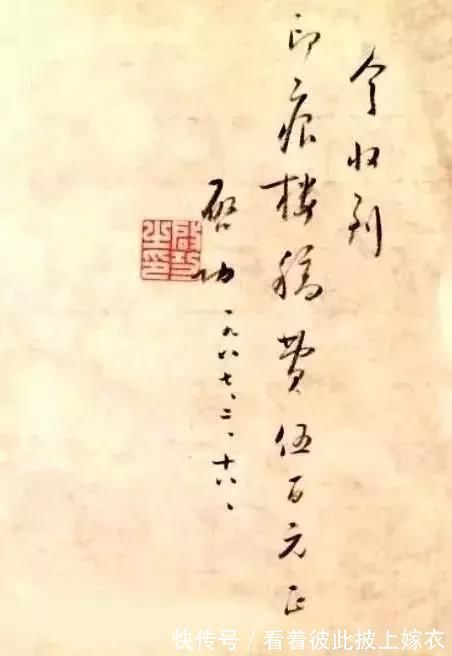 今收到
印痕楼稿费伍百元正
启功
一九八七、二、十六、
启功之印
快传号/看着彼此披上嫁衣